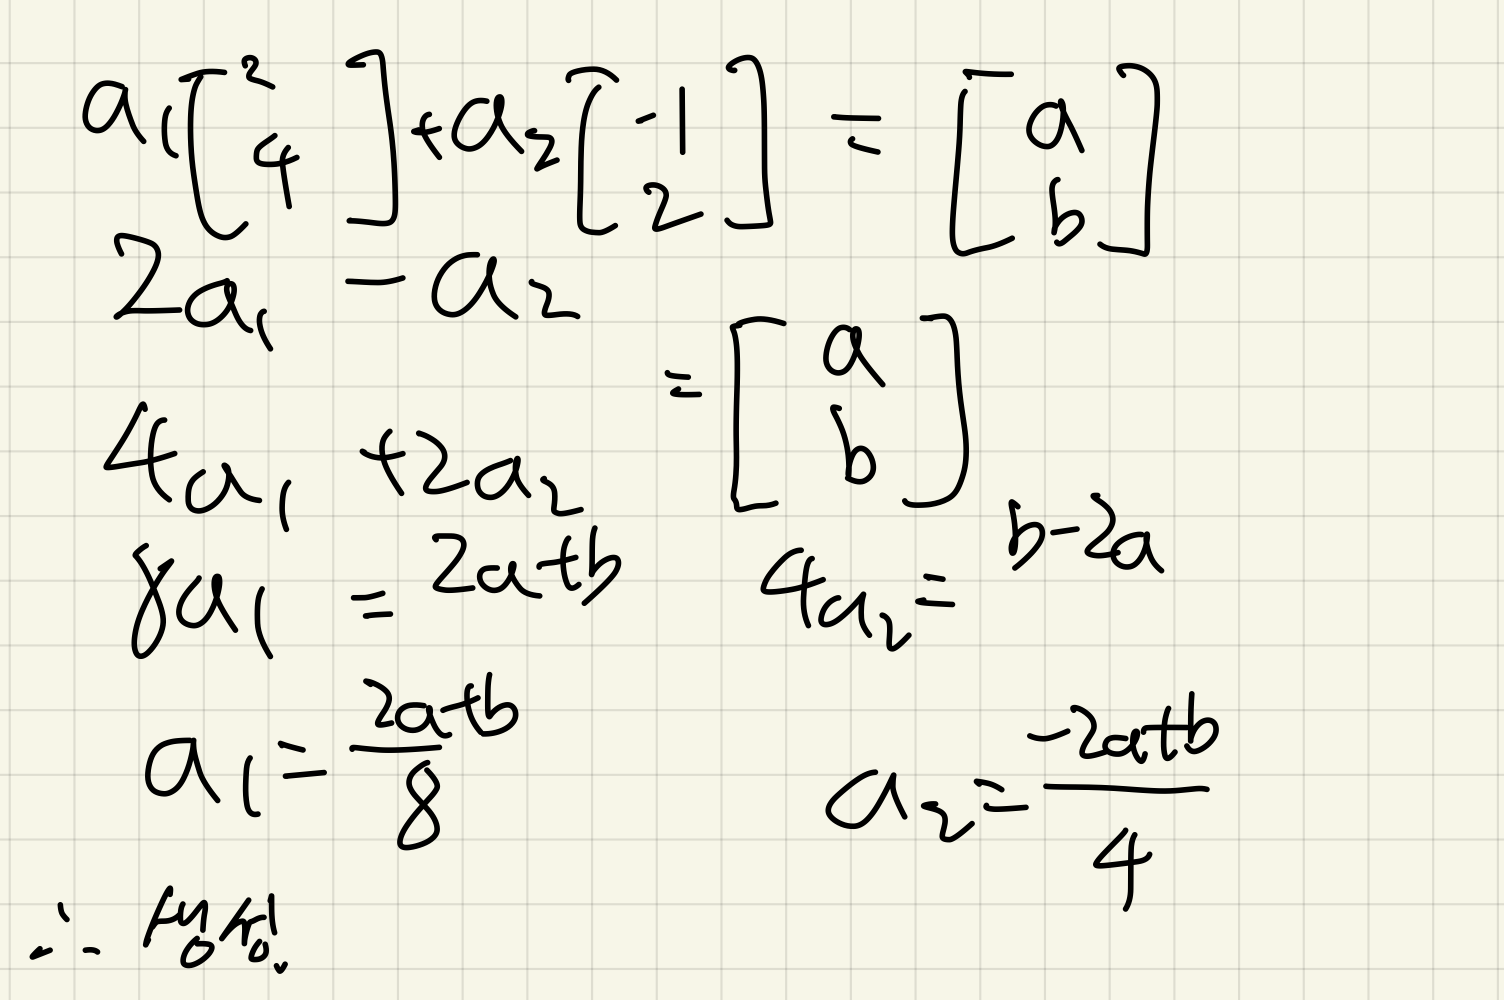 a₁[2 4] + a₂[-1 2] = [a b]
2a₁ - a₂
= [a b]
4a₁ + 2a₂
8a₁ = 2a+b 4a₂ = b-2a
a₁ = (2a+b)/8 a₂ = (-2a+b)/4
∴